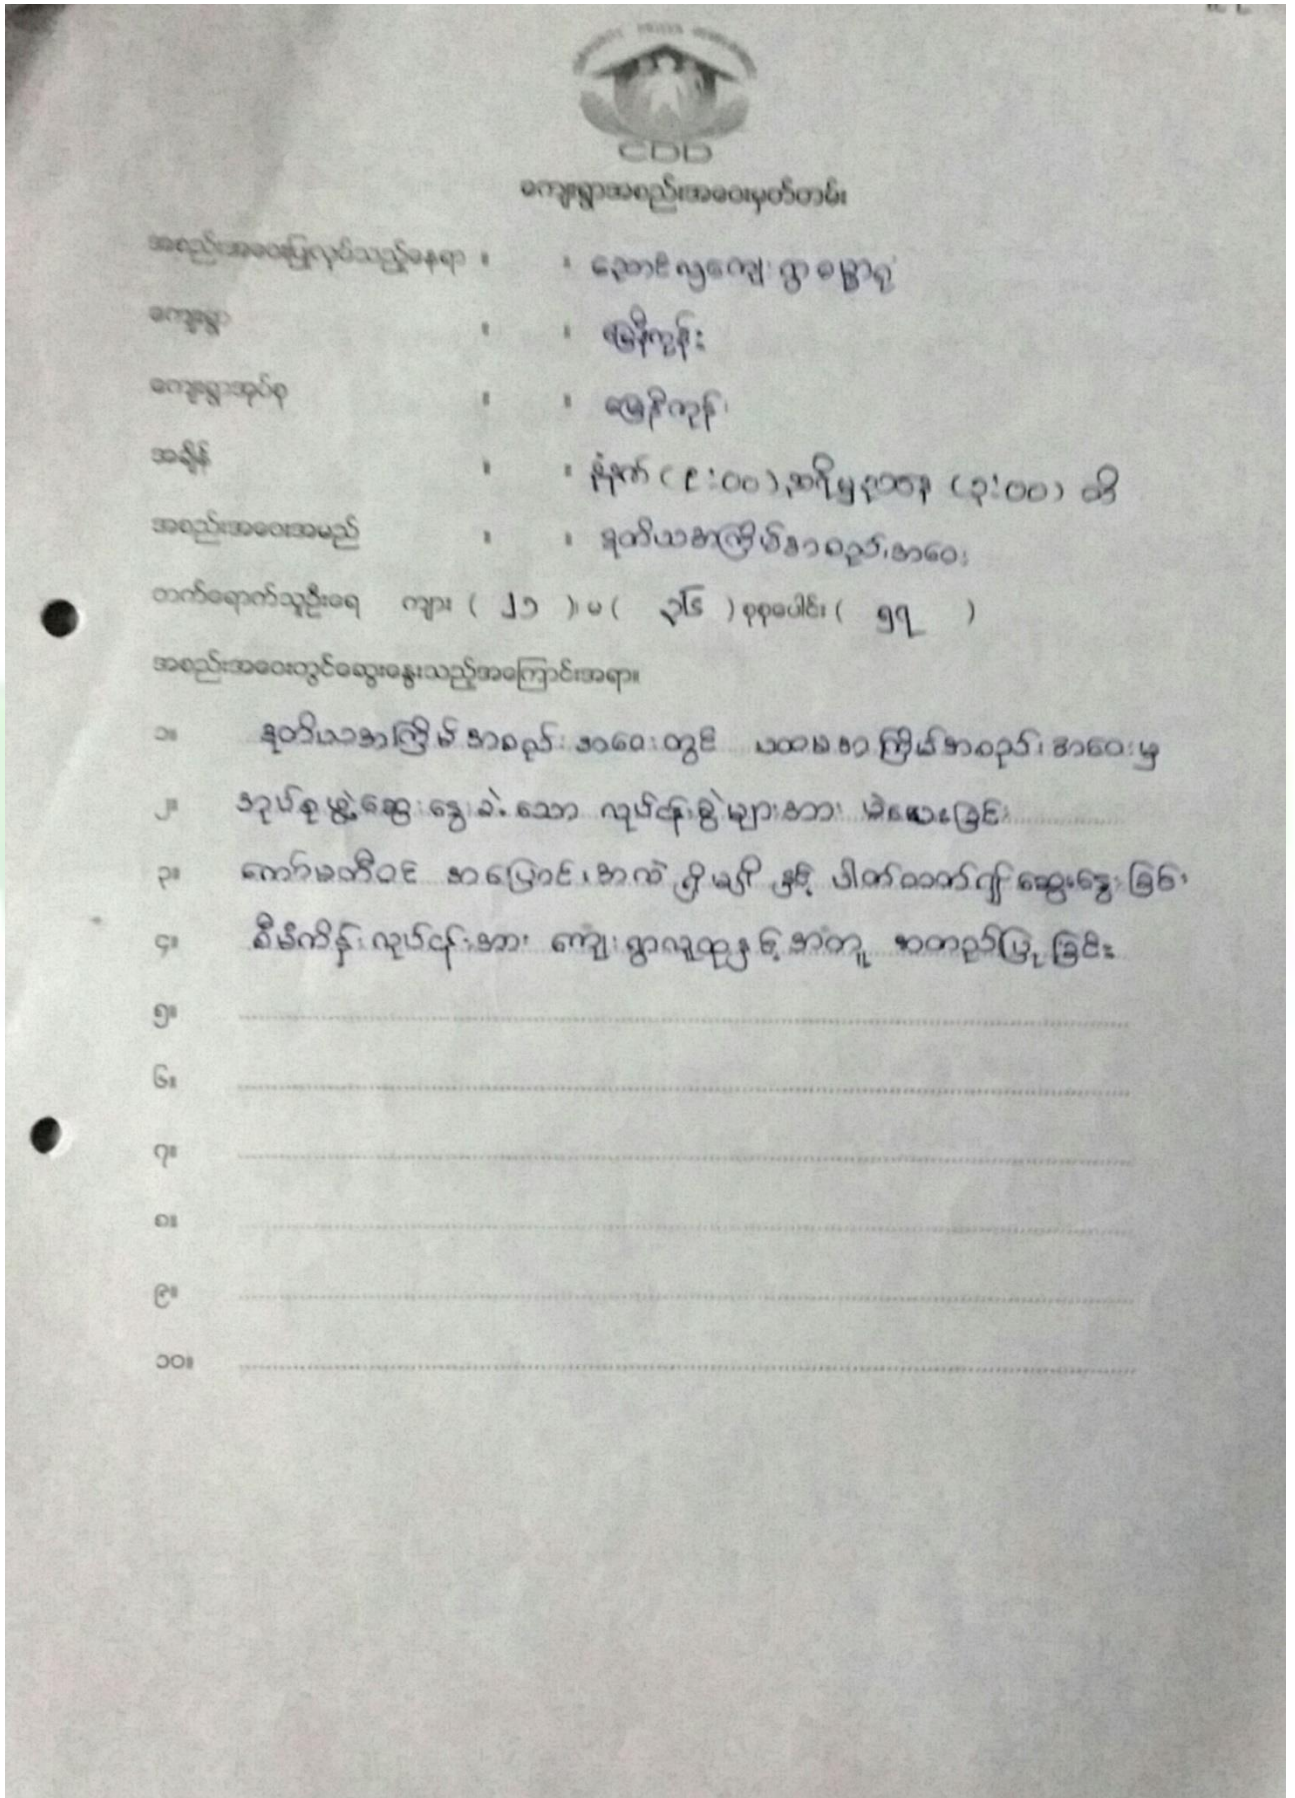 COMMUNITY DRIVEN DEVELOPMENT
CDD
ကျေးရွာအစည်းအဝေးမှတ်တမ်း
အစည်းအဝေးပြုလုပ်သည့်နေရာ ။ ။ ညောင်လှကျေးရွာ
ကျေးရွာ ။ ။ မြေနီကုန်း
ကျေးရွာအုပ်စု ။ ။ မြေနီကုန်း
အချိန် ။ ။ နံနက် (၉:၀၀) နာရီမှ ညနေ (၃:၀၀) ထိ
အစည်းအဝေးအမည် ။ ။ ဒုတိယအကြိမ်အစည်းအဝေး
တက်ရောက်သူဦးရေ ကျား ( ၂၁ )၊ မ ( ၃၆ ) စုစုပေါင်း ( ၅၇ )
အစည်းအဝေးတွင်ဆွေးနွေးသည့်အကြောင်းအရာ။
၁။ ဒုတိယအကြိမ်အစည်းအဝေးတွင် ပထမအကြိမ်အစည်းအဝေးမှ
၂။ အုပ်စုဖွဲ့ဆွေးနွေးခဲ့သော လုပ်ငန်းစွဲများအား မဲပေးခြင်း
၃။ ကော်မတီဝင် အပြောင်းအလဲ ရှိ/မရှိ နှင့် ပါတ်သက်၍ ဆွေးနွေးခြင်း
၄။ စီမံကိန်းလုပ်ငန်းအား ကျေးရွာလူထုနှင့်အတူ အတည်ပြုခြင်း
၅။
၆။
၇။
၈။
၉။
၁၀။